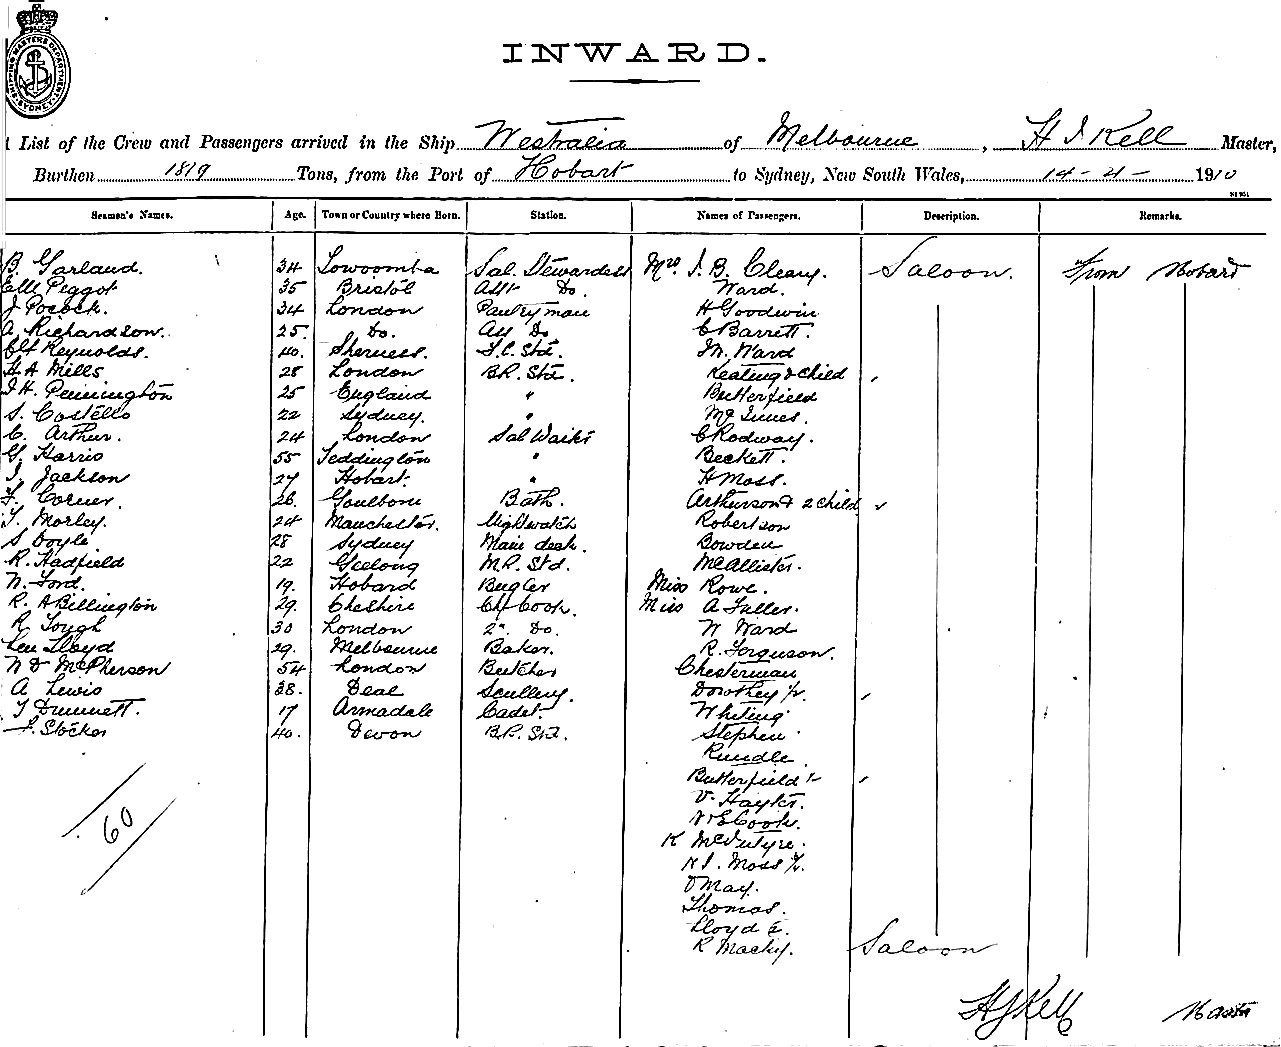 SHIPPING MASTERS DEPARTMENT SYDNEY
INWARD.
List of the Crew and Passengers arrived in the Ship Westralia of Melbourne, H J Kell Master,
Burthen 1819 Tons, from the Port of Hobart to Sydney, New South Wales, 14-4-1910
Seamen's Names. Age. Town or Country where Born. Station. Names of Passengers. Description. Remarks.
B. Garland. 34 Towoomba Sal. Stewardess Mrs. J. B. Cleary. Saloon. From Hobart
EM Peggot 35 Bristol Asst Do. Ward.
J Pocock. 34 London Pantryman H Goodwin
A. Richardson. 25. Do. Ass Do C Barrett.
Reynolds. 40. Sherness. S.C. Std. M. Ward
H A Mills 28 London B.R. Std. Keating & Child
J. H. Pennington 25 England " Butterfield
S. Costello 22 Sydney. " Mc Innes.
C. Arthur. 24 London Sal Waitr C Rodway.
G. Harris 55 Teddington " Beckett.
J. Jackson 27 Hobart. " H Moss.
F. Corner. 26. Goulborn Bath. Arthurson & 2 child
T. Morley. 24 Manchester. Nightwatch Robertson
S Doyle 28 Sydney Main deck. Bowden
R. Hadfield 22 Geelong M.R. Std. McAllister.
N. Ford. 19. Hobard Bugler Miss Rowe.
R. A Billington 29. Cheshire Ch Cook. Miss A Fuller.
R Tough 30 London 2nd. Do. W Ward
Len Lloyd 29. Melbourne Baker. R. Ferguson.
N D McPherson 54 London Butcher Chesterman
A Lewis 38. Deal Scullery. Dorothey ½
T Dummett. 17 Armadale Cadet. Whiting
F. Stocker 40. Devon B.R. Std. Stephen
Rundle.
Butterfield
V. Hayter.
Cook.
60
K McIntyre.
Moss ½.
May.
Thomas.
Lloyd
R Macky. Saloon
H J Kell Master